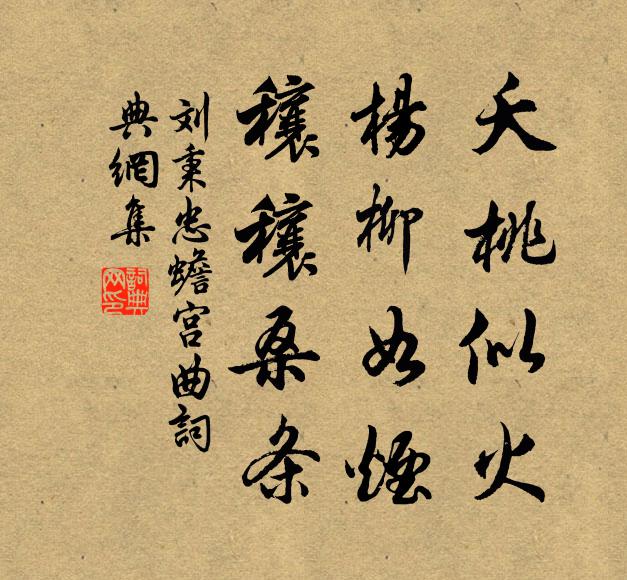 夭桃似火
楊柳如煙
穰穰桑条
刘秉忠蟾宫曲詞
典網集
詞典
网印